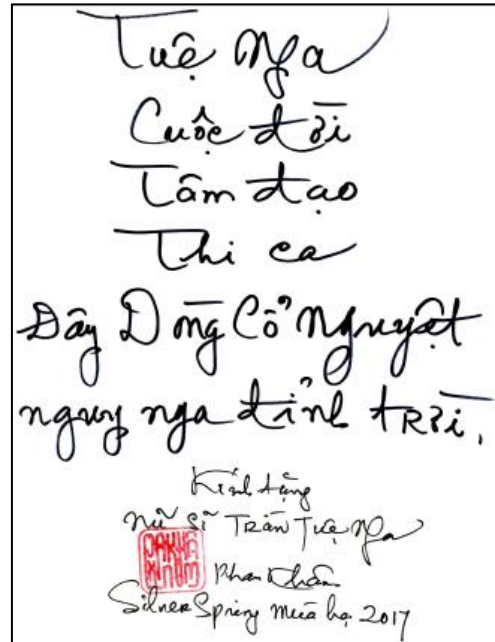 Tuệ Nga
Cuộc đời
Tâm đạo
Thi ca
Đây Dòng Cổ Nguyệt
nguy nga đỉnh trời.
Kính tặng
Nữ sĩ Trần Tuệ Nga
Phan Khâm
Silver Spring mùa hạ 2017